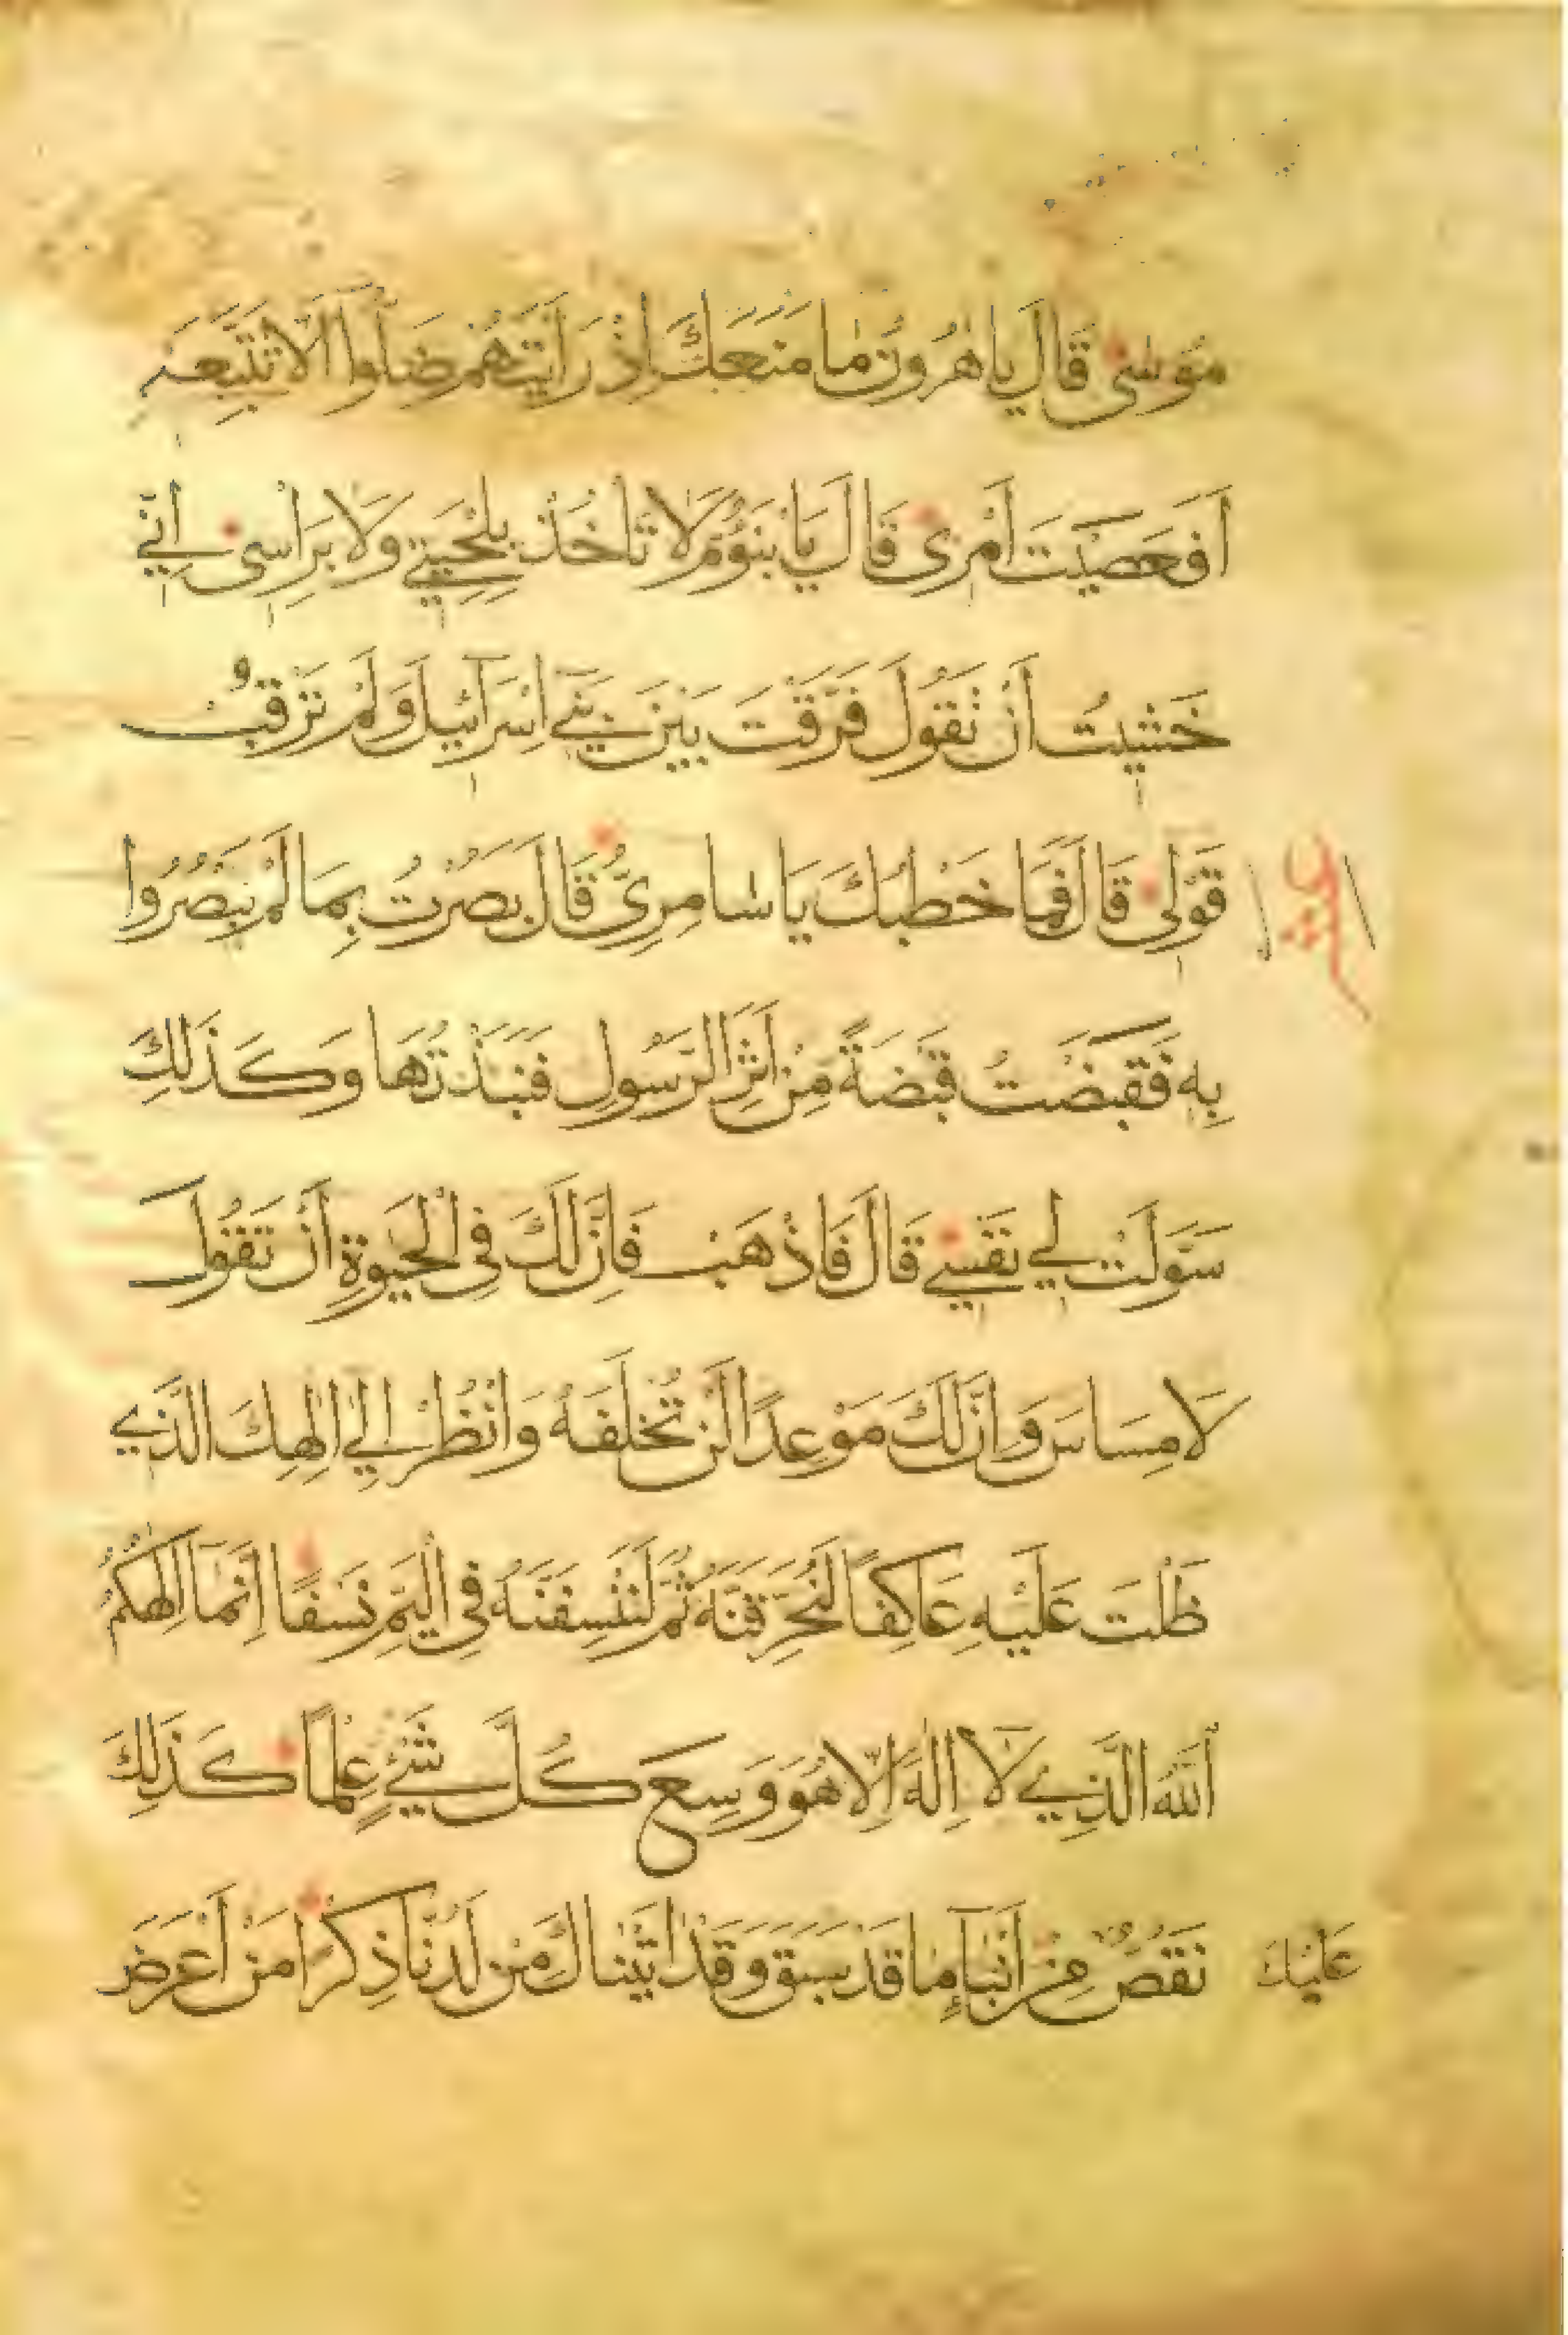 مُوسٰى قَالَ يَا هٰرُونُ مٰا مَنَعَكَ اِذْ رَاَيْتَهُمْ ضَلُّوا اَلَّا تَتَّبِعَنِ
اَفَعَصَيْتَ اَمْرِى قَالَ يَا بْنَؤُمَّ لَا تَاْخُذْ بِلِحْيَتِي وَلَا بِرَاْسِى اِنِّي
خَشِيتُ اَنْ تَقُولَ فَرَّقْتَ بَيْنَ بَنِي اِسْرَآئِيلَ وَلَمْ تَرْقُبْ
قَوْلِى قَالَ فَمَا خَطْبُكَ يَا سَامِرِىُّ قَالَ بَصُرْتُ بِمَا لَمْ يَبْصُرُوا
بِهٖ فَقَبَضْتُ قَبْضَةً مِنْ اَثَرِ الرَّسُولِ فَنَبَذْتُهَا وَكَذٰلِكَ
سَوَّلَتْ لِي نَفْسِي قَالَ فَاذْهَبْ فَاِنَّ لَكَ فِى الْحَيٰوةِ اَنْ تَقُولَ
لَا مِسَاسَ وَاِنَّ لَكَ مَوْعِدًا لَنْ تُخْلَفَهُ وَانْظُرْ اِلٰي اِلٰهِكَ الَّذِي
ظَلْتَ عَلَيْهِ عَاكِفًا لَنُحَرِّقَنَّهُ ثُمَّ لَنَنْسِفَنَّهُ فِى الْيَمِّ نَسْفًا اِنَّمَا اِلٰهُكُمُ
اَللّٰهُ الَّذِي لَا اِلٰهَ اِلَّا هُوَ وَسِعَ كُلَّ شَيْءٍ عِلْمًا كَذٰلِكَ
عَلَيْكَ نَقُصُّ مِنْ اَنْبَآءِ مٰا قَدْ سَبَقَ وَقَدْ اٰتَيْنَاكَ مِنْ لَدُنَّا ذِكْرًا مَنْ اَعْرَضَ